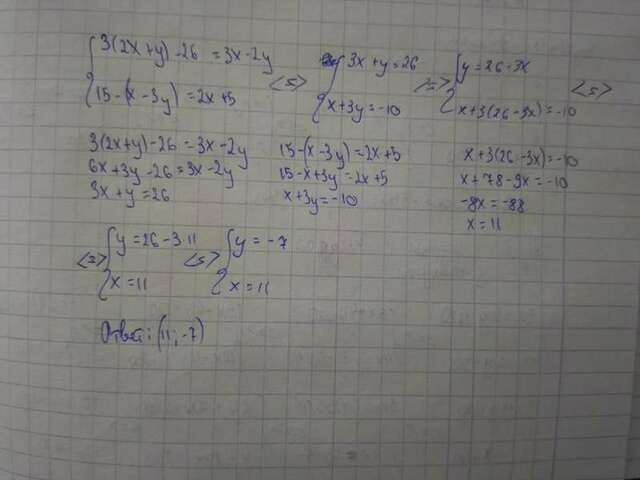 { 3(2x+y) - 26 = 3x - 2y
15 - (x - 3y) = 2x + 5 <=> { 3x + y = 26
x + 3y = -10 <=> { y = 26 - 3x
x + 3(26 - 3x) = -10 <=>
3(2x+y) - 26 = 3x - 2y
6x + 3y - 26 = 3x - 2y
3x + y = 26
15 - (x - 3y) = 2x + 5
15 - x + 3y = 2x + 5
x + 3y = -10
x + 3(26 - 3x) = -10
x + 78 - 9x = -10
-8x = -88
x = 11
<=> { y = 26 - 3 11
x = 11 <=> { y = -7
x = 11
Ответ: (11; -7)